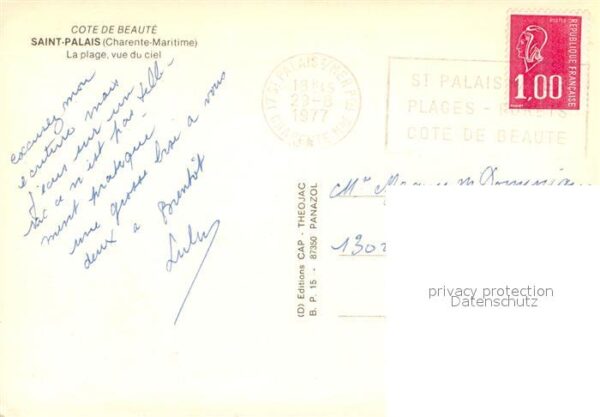 COTE DE BEAUTÉ
SAINT-PALAIS (Charente-Maritime)
La plage, vue du ciel
excusez mon
écriture mais
j'écris sur un
et ce n'est pas telle-
ment pratique
une grosse bise à vous
deux a Bientôt
Lulu
(D) Editions CAP - THEOJAC
B. P. 15 - 87350 PANAZOL
17 ST PALAIS S/MER PPAL
18H45
1977
CHARENTE MME
ST PALAIS
PLAGES -
COTE DE BEAUTE
POSTES
REPUBLIQUE FRANÇAISE
1,00
130
privacy protection
Datenschutz